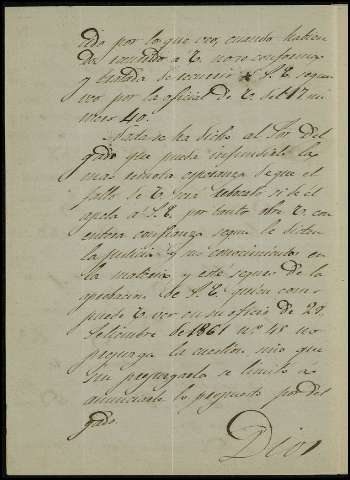 por lo que veo, cuando habien
a V. no se conforma
y trata de recurrir a S. E. segun
veo por la oficial de V. del 17 nu
mero 40.
Nada se ha dicho al Sor. Del
gado que pueda infundirle la
mas remota esperanza de que el
fallo de V. será si se
apela a S. E. por tanto obre V. con
entera confianza segun le dicten
la justicia y sus conocimientos en
la materia y este seguro de la
aprobacion de S. E. quien como
puede V. ver en su oficio de 20,
Setiembre de 1861 nº 45 no
prejuzga la cuestion sino que
sin prejuzgarla se limita a
anunciarle lo propuesto por Del
gado.
Dios